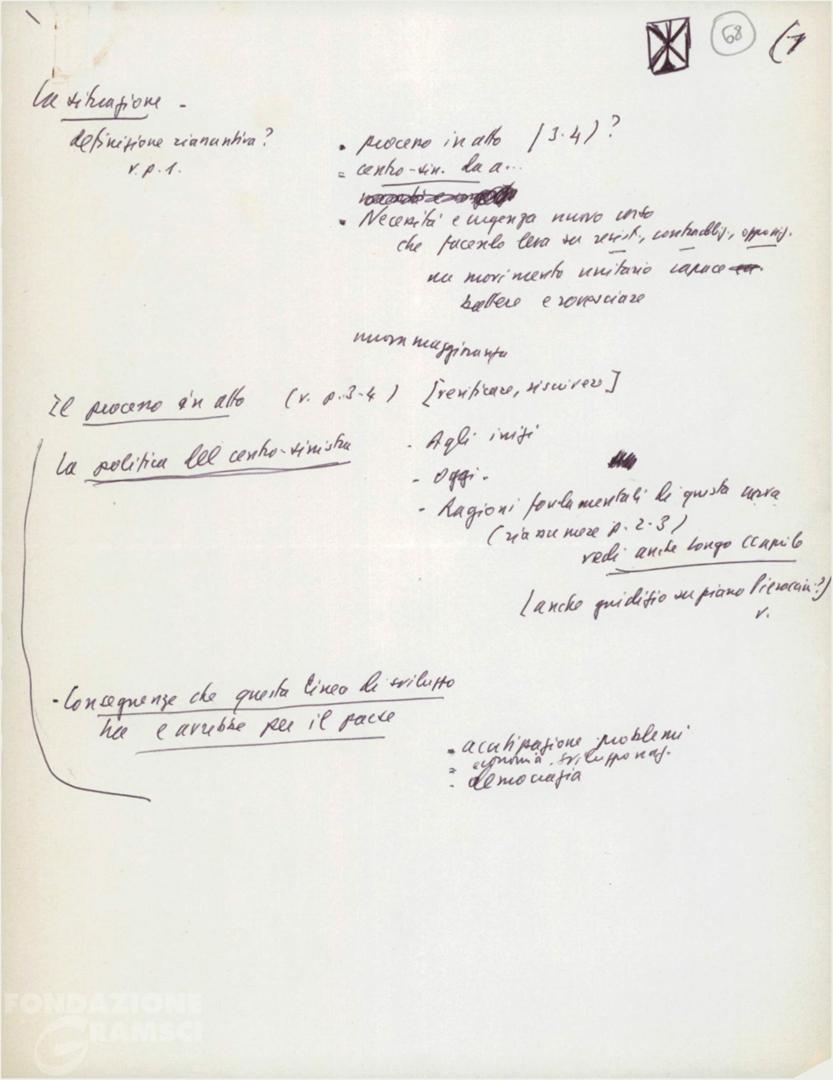 68 (1
La situazione -
definizione riassuntiva?
v. p. 1.
• processo in atto (3-4)?
= centro-sin. da a...
• Necessità e urgenza nuovo corso
che facendo leva su resist., contraddiz., opposiz.
un movimento unitario capace
battere e rovesciare
nuova maggioranza
Il processo in atto (v. p. 3-4) [verificare, riscrivere]
La politica del centro-sinistra
- Agli inizi
- Oggi -
- Ragioni fondamentali di questa curva
(riassumere p. 2-3)
vedi anche Longo
(anche giudizio su piano Pieraccini?)
v.
- Conseguenze che questa linea di sviluppo
ha e avrebbe per il paese
• acutizzazione problemi
= economia, sviluppo naz.
- democrazia
FONDAZIONE
GRAMSCI